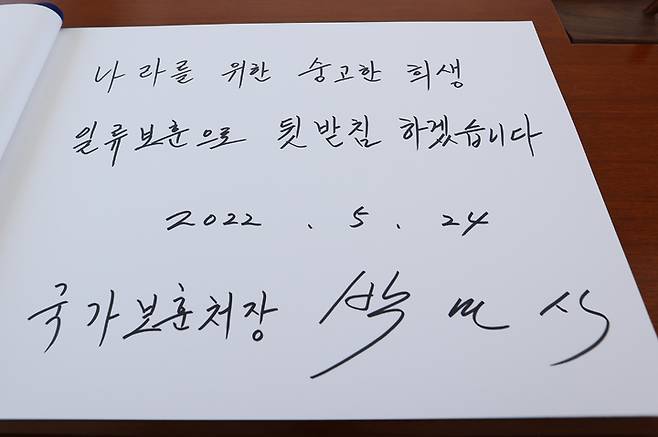 나라를 위한 숭고한 희생
일류보훈으로 뒷받침 하겠습니다
2022 . 5 . 24
국가보훈처장 박민식